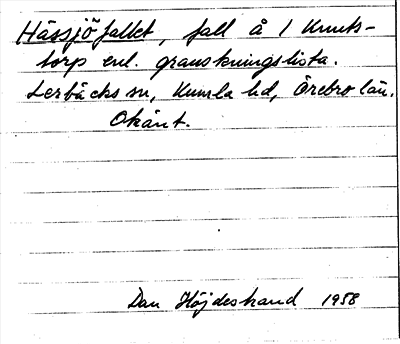 Hässjöfallet, fall å 1 Knuts-
torp enl. granskningslista.
Lerbäcks sn, Kumla hd, Örebro län.
Okänt.
Dan Höjdestrand 1958